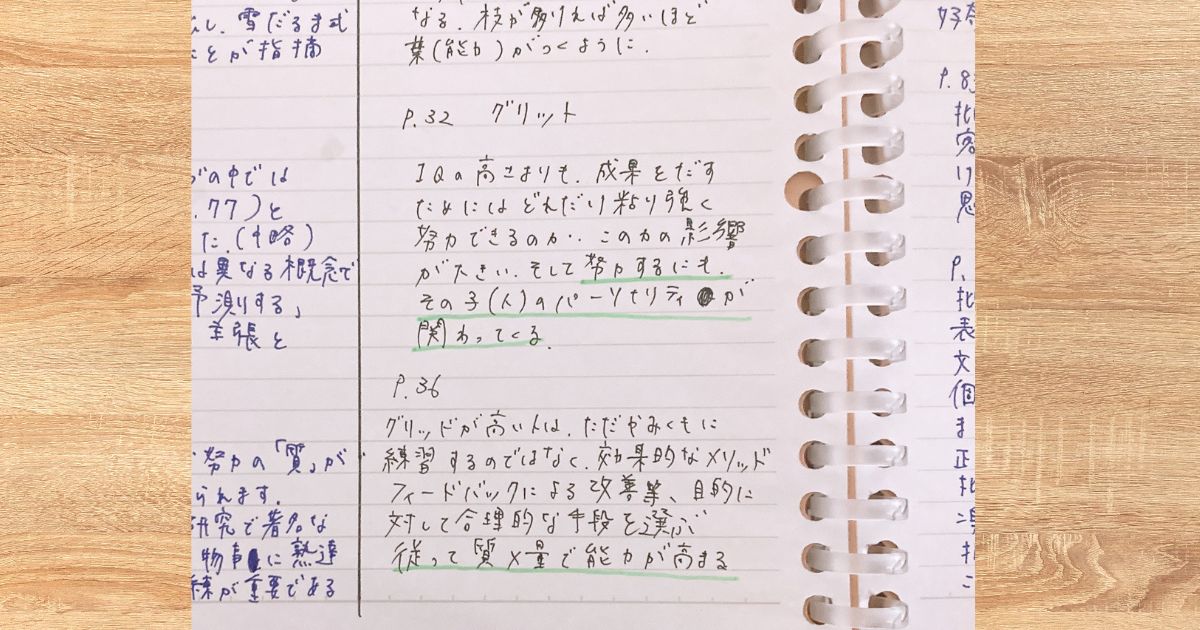 し、雪だるま式
とが指摘
の中では
.77)と
た。(中略)
は異なる概念で
予測する」
主張と
努力の「質」が
られます。
研究で著名な
物事に熟達
練が重要である
なる。枝が多ければ多いほど
葉(能力)がつくように。
P.32 グリット
IQの高さよりも、成果をだす
ためにはどれだけ粘り強く
努力できるのか‥この力の影響
が大きい。そして努力するにも、
その子(人)のパーソナリティが
関わってくる。
P.36
グリッドが高い人は、ただやみくもに
練習するのではなく、効果的なメソッド
フィードバックによる改善等、目的に
対して合理的な手段を選ぶ
従って質×量で能力が高まる
P.83
批
容
け
思
P.
批
表
文
個
ま
正
批
こ